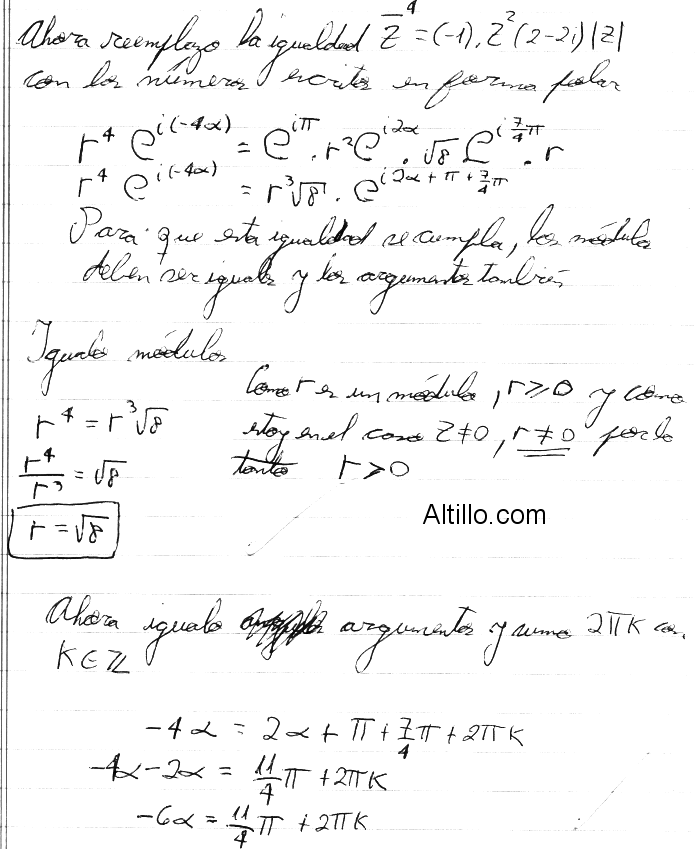 Ahora reemplazo la igualdad z̅⁴ = (-1). z²(2-2i)|z|
con los números escritos en forma polar
r⁴ e^{i(-4α)} = e^{iπ} . r² e^{i2α} . √8 e^{i 7/4 π} . r
r⁴ e^{i(-4α)} = r³√8 . e^{i2α + π + 7/4 π}
Para que esta igualdad se cumpla, los módulos
deben ser iguales y los argumentos también
Igualo módulos
Como r es un módulo, r ≥ 0 y como
estoy en el caso z ≠ 0, r ≠ 0 por lo
tanto r > 0
r⁴ = r³√8
r⁴/r³ = √8
r = √8
Altillo.com
Ahora igualo argumentos y sumo 2πk con
K ∈ ℤ
-4α = 2α + π + 7/4 π + 2πK
-4α - 2α = 11/4 π + 2πK
-6α = 11/4 π + 2πK